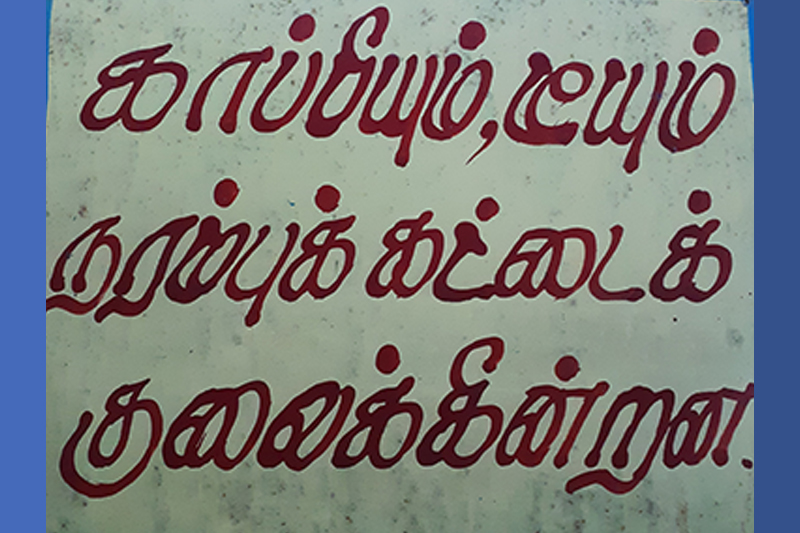 காப்பியும், டீயும்
நரம்புக் கட்டைக்
குலைக்கின்றன.